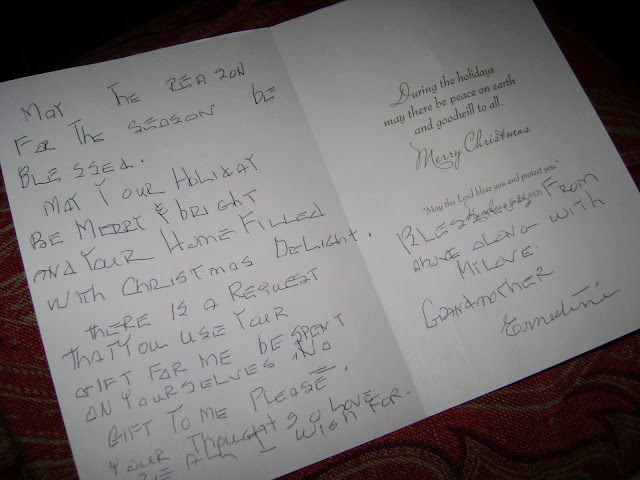 MAY THE REASON
FOR THE SEASON BE
BLESSED.
MAY YOUR HOLIDAY
BE MERRY & BRIGHT
AND YOUR HOME FILLED
WITH CHRISTMAS DELIGHT.
THERE IS A REQUEST
THAT YOU USE YOUR
GIFT FOR ME BE SPENT
ON YOURSELVES. NO
GIFT TO ME PLEASE.
YOUR THOUGHTS & LOVE
ALL I WISH FOR.
During the holidays
may there be peace on earth
and goodwill to all.
Merry Christmas
"May the Lord bless you and protect you."
BLESSINGS FROM
ABOVE ALONG WITH
MI LOVE.
GRANDMOTHER
Ernestine